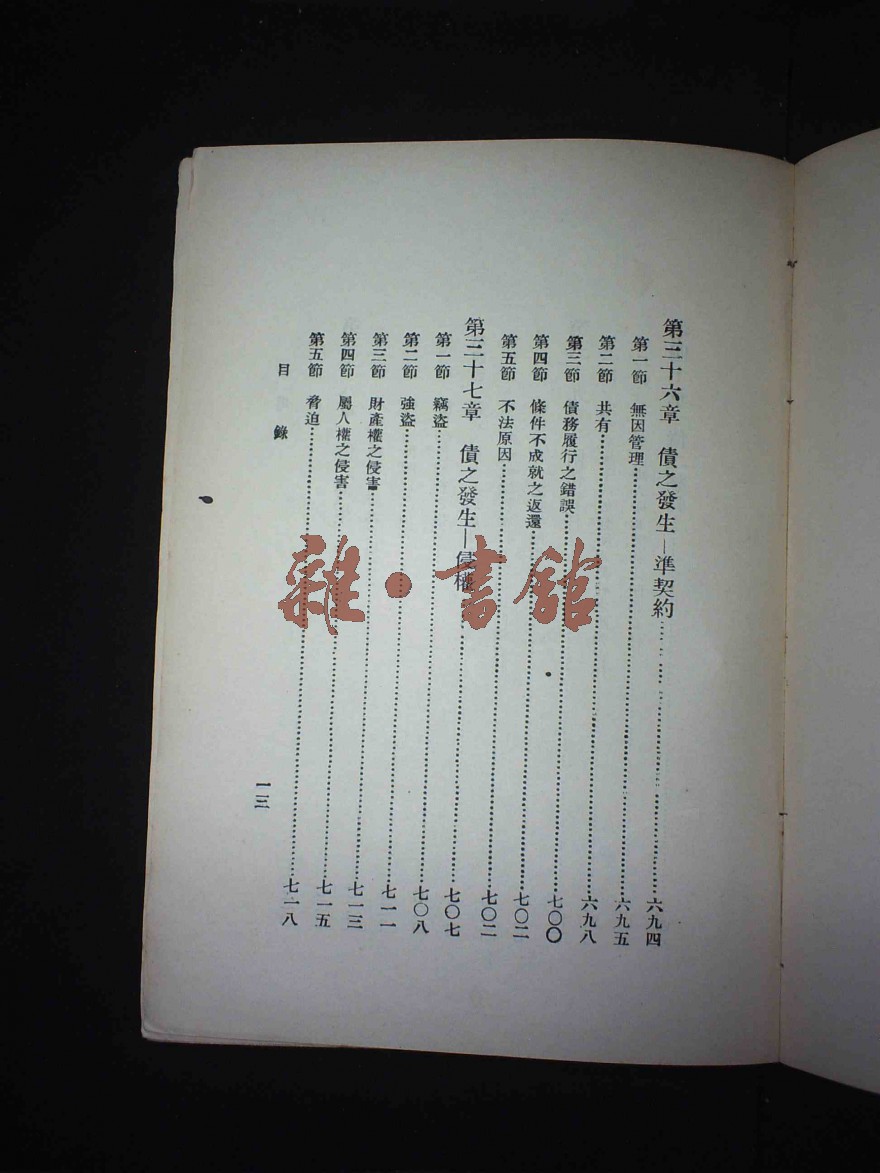 第三十六章　債之發生—準契約……六九四
第一節　無因管理……六九五
第二節　共有……六九八
第三節　債務履行之錯誤……七〇〇
第四節　條件不成就之返還……七〇二
第五節　不法原因……七〇二
第三十七章　債之發生—侵權……七〇七
第一節　竊盜……七〇八
第二節　強盜……七一一
第三節　財產權之侵害……七一三
第四節　屬人權之侵害……七一五
第五節　脅迫……七一八
目錄
一三
雜·書館